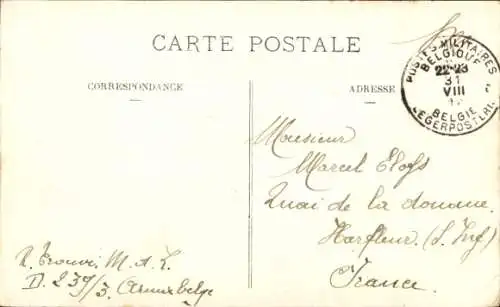 CARTE POSTALE
CORRESPONDANCE
ADRESSE
POSTES MILITAIRES
BELGIQUE
22-23
31
VIII
BELGIE
LEGERPOSTERIJ
Monsieur
Marcel Eloys
Quai de la douane
Harfleur (S. Inf)
France
M. A. L.
D 239/3. Armée belge